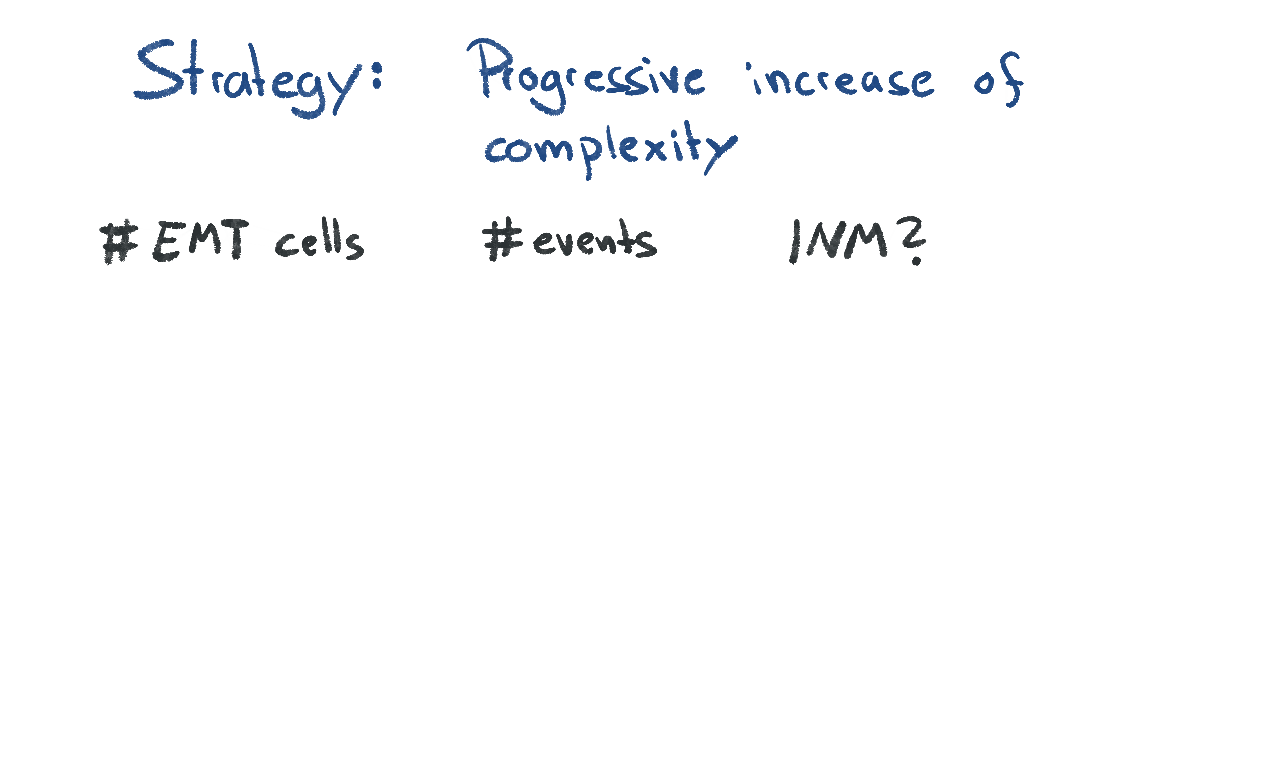 Strategy: Progressive increase of
complexity
# EMT cells # events INM?